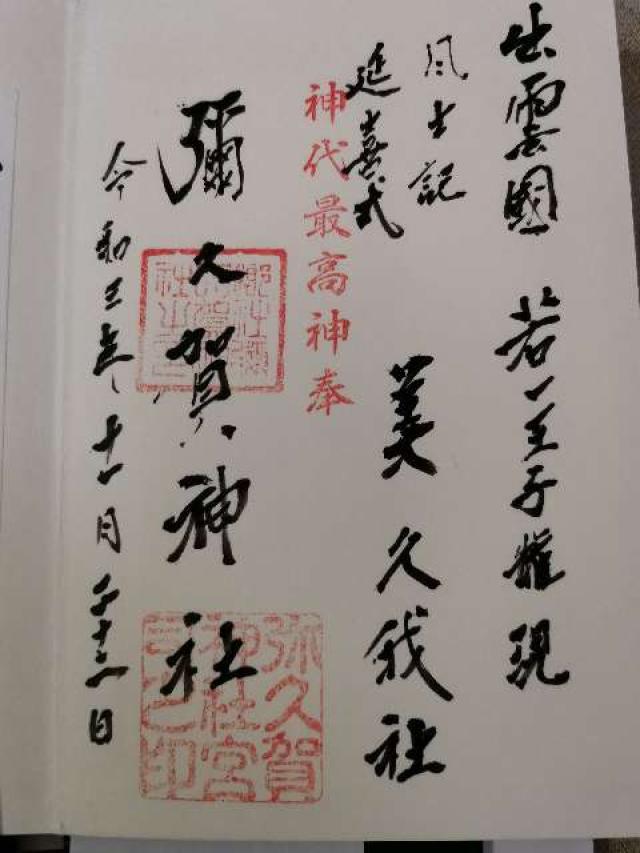 出雲國 若一王子權現
風土記
延喜式
美久我社
神代最高神奉
彌久賀神社
弥久賀
神社宮
司之印
令和三年十一月二十三日